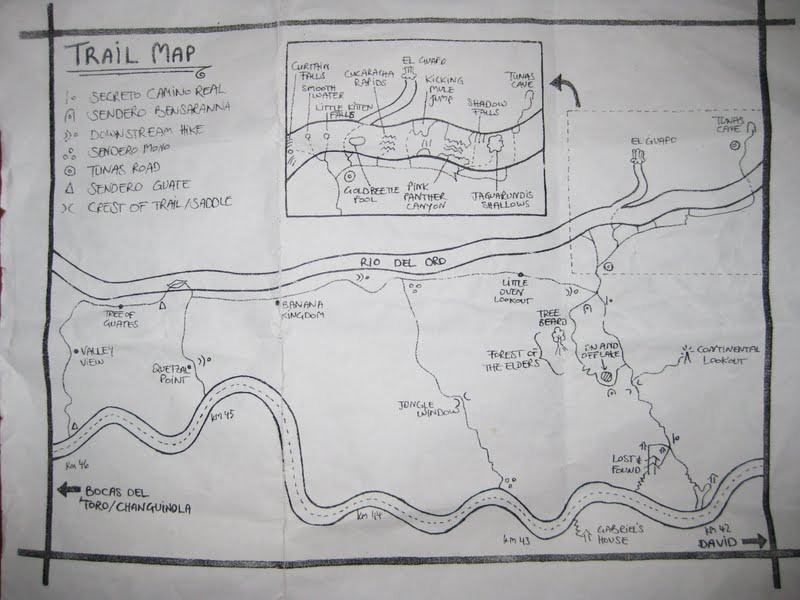 TRAIL MAP
SECRETO CAMINO REAL
SENDERO BENSARANNA
DOWNSTREAM HIKE
SENDERO MONO
TUNAS ROAD
SENDERO GUATE
CREST OF TRAIL/SADDLE
FALLS
SMOOTH
WATER
LITTLE KITEN
FALLS
CUCARACHA
RAPIDS
EL GUAPO
KICKING
MULE
JUMP
SHADOW
FALLS
TUNAS
CAVE
GOLDBEETLE
POOL
PINK
PANTHER
CANYON
JAGUARUNDIS
SHALLOWS
EL GUAPO
TUNAS
CAVE
RIO DEL ORO
TREE OF
GUATES
BANANA
KINGDOM
LITTLE
OVEN
LOOKOUT
VALLEY
VIEW
QUETZAL
POINT
TREE
BEARD
FOREST OF
THE ELDERS
ON AND
OFF LAKE
CONTINENTAL
LOOKOUT
JUNGLE
WINDOW
LOST &
FOUND
KM 46
KM 45
KM 44
KM 43
KM 42
BOCAS DEL
TORO/CHANGUINOLA
GABRIEL'S
HOUSE
DAVID